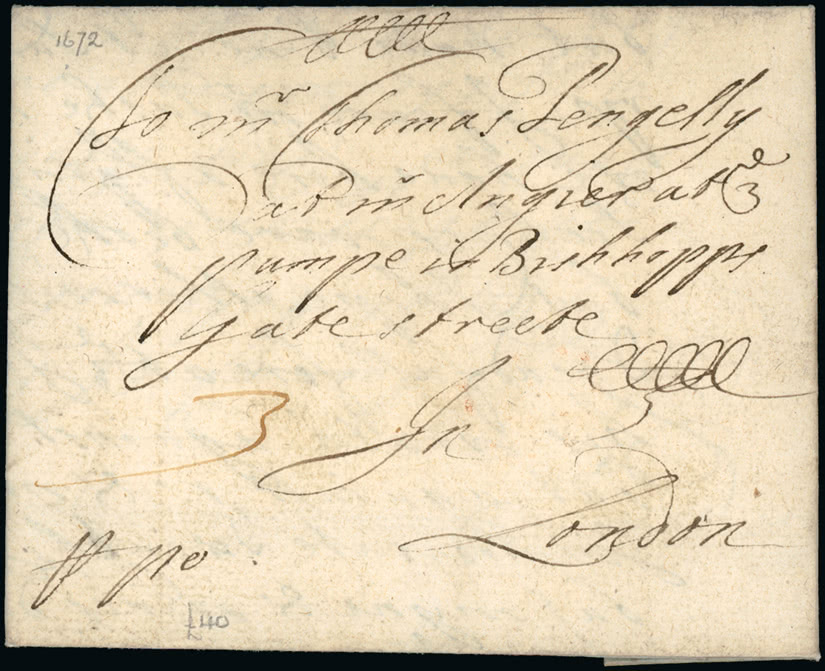 1672
To mr Thomas Pengelly
at mr Angier at ye
pumpe in Bishhopps
gate streete
In
3
London
p po
140